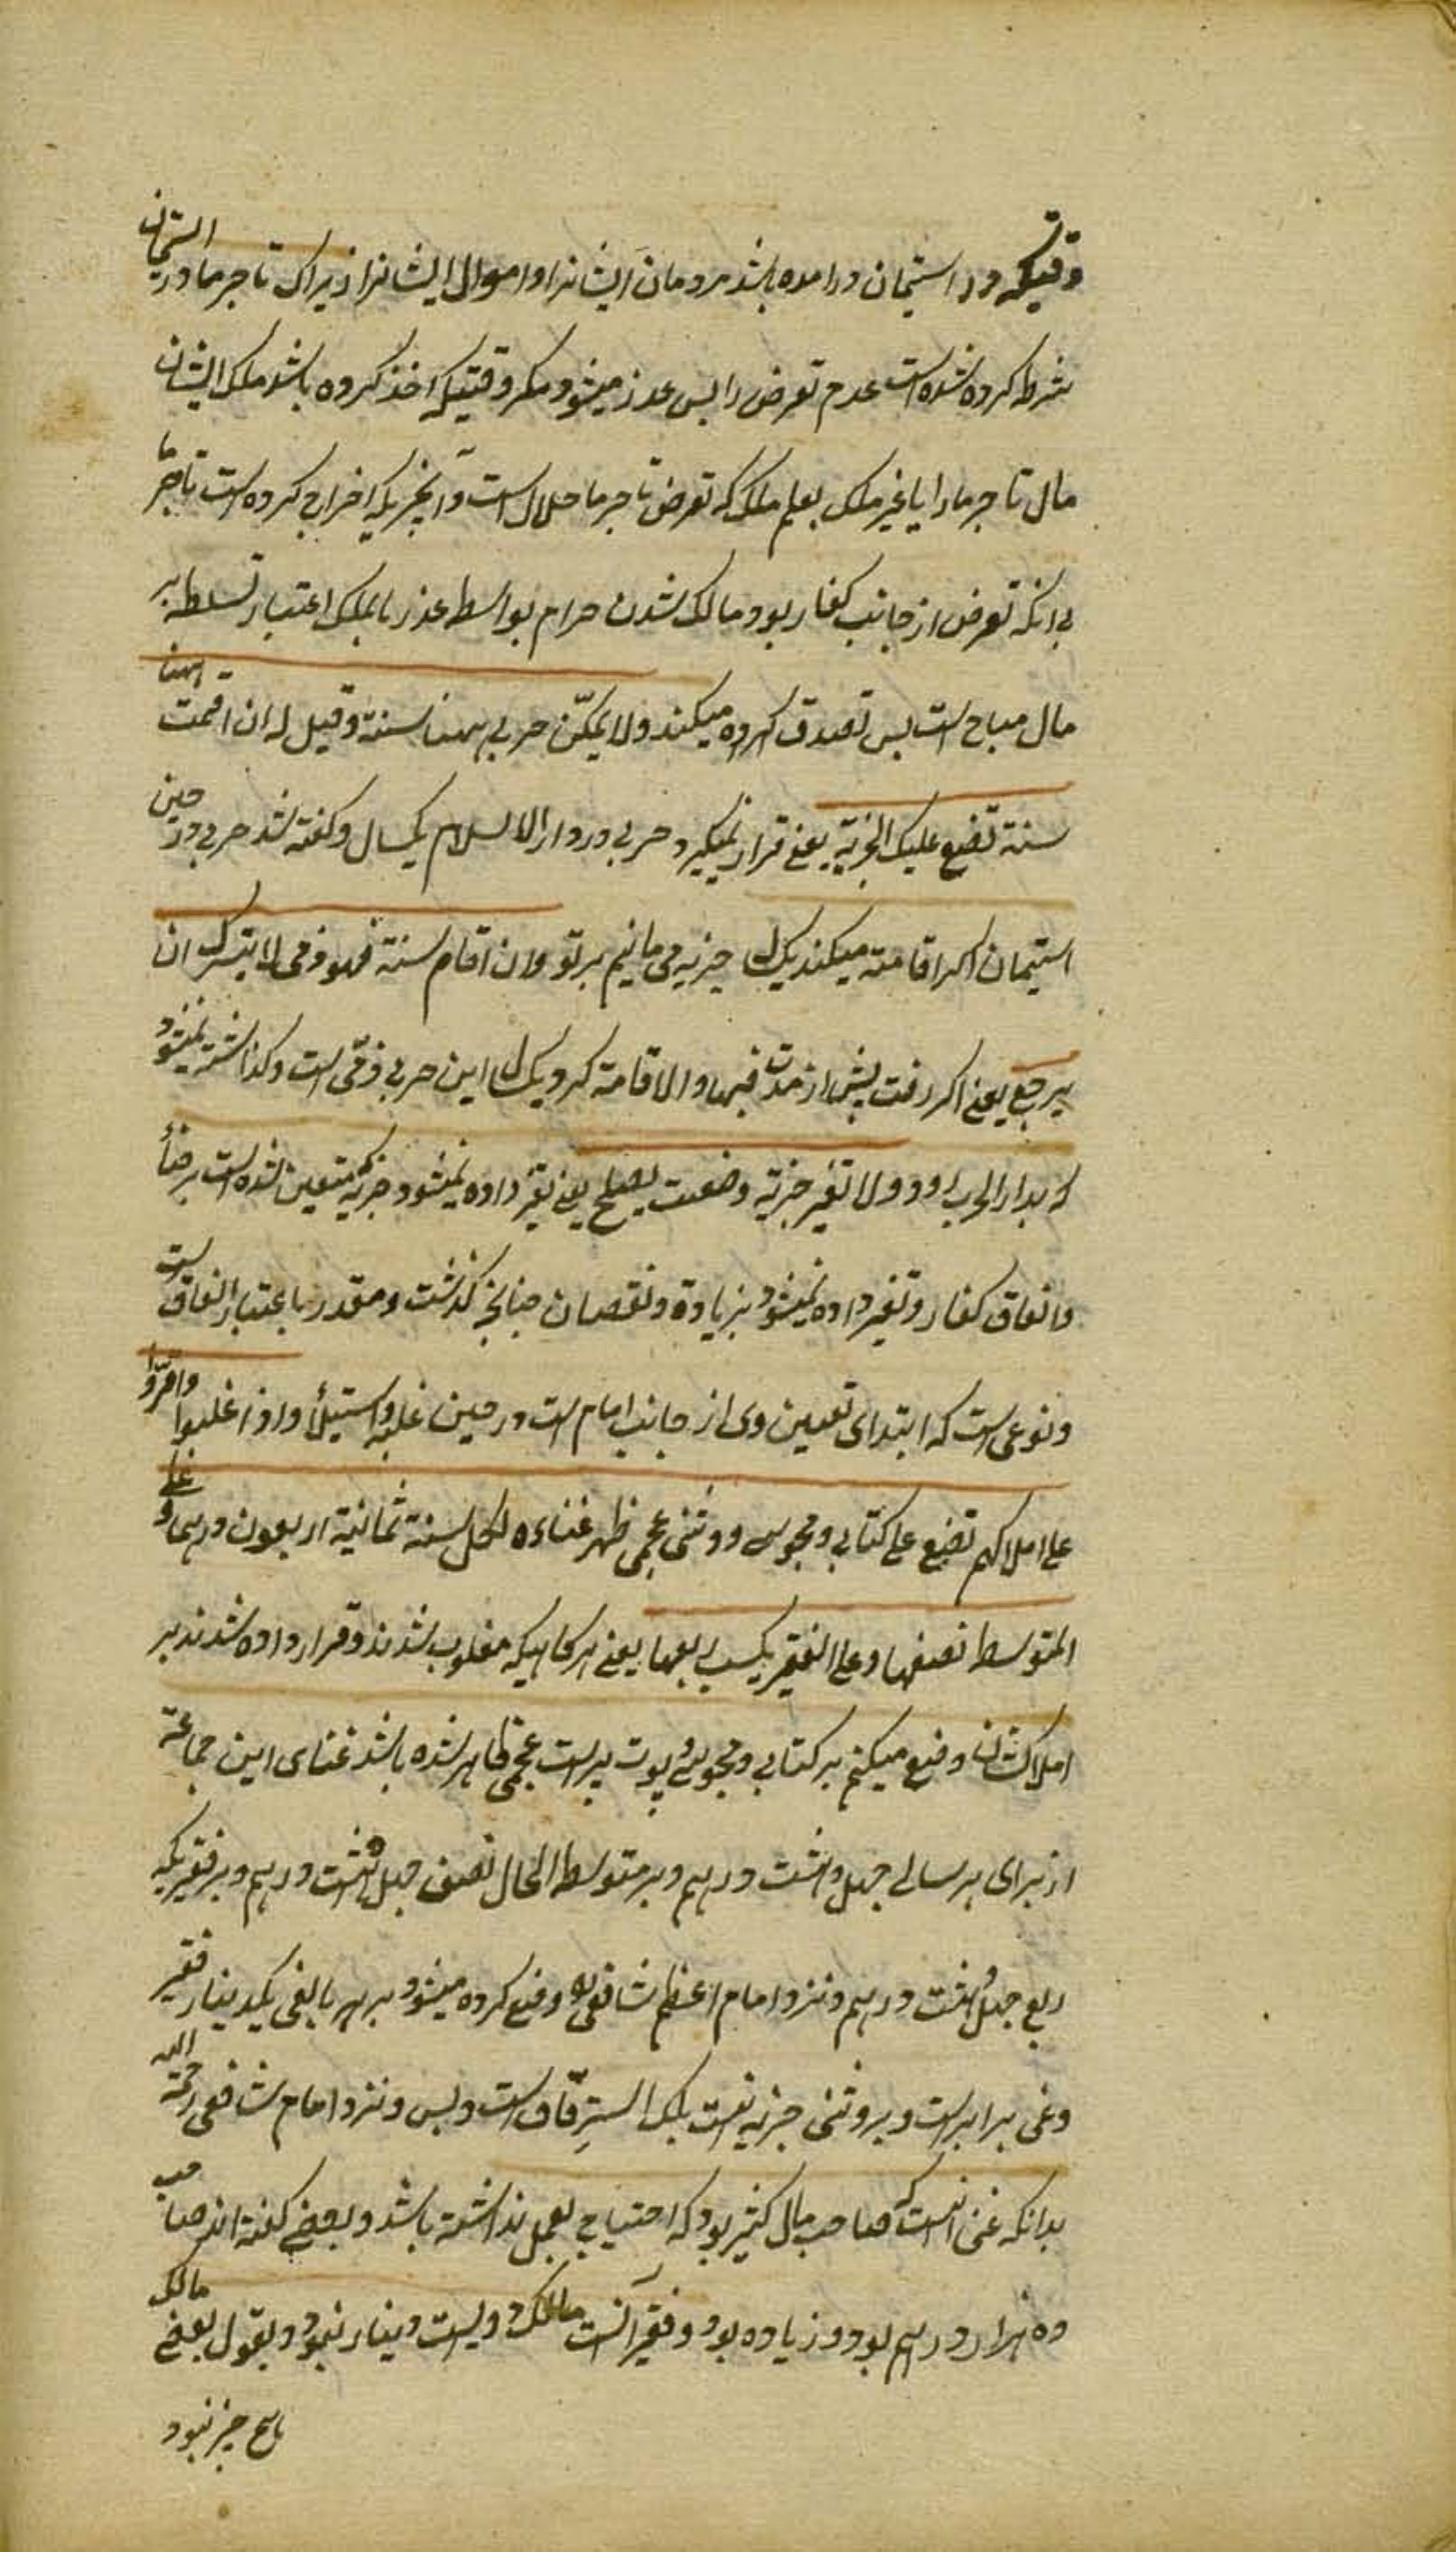 وقتیکه در استیمان درامده باشد مردمان ایشانرا و اموال ایشانرا زیراک تاجر ما در استیمان
شرط کرده شده است عدم تعرض را پس عدر میشود مکر وقتیکه اخذ کرده باشد ملک ایشان
مال تاجر ما را یا غیر ملک بعلم ملک که تعرض تاجر ما حلال است و آنچیزیکه اخراج کرده است تاجر ما
بی انکه تعرض از جانب کفار بود مالک شدن حرام بواسطه عذر باملک اعتبار تسلط بر
مال مباح است پس تصدق کرده میکند ولا یمکن حربی ههنا سنة وقیل له ان اقمت ههنا
سنة تضع علیک الجزیة یعنی قرار نمیکیرد حربی در دار الاسلام یکسال و کفته شد حربی در حین
استیمان اکر اقامة میکند یک سال جزیه می مانیم بر تو وان اقام سنة فهو ذمی لا یترک ان
یرجع یعنی اکر رفت پیش از مدت فبها والا اقامة کرد یک سال این حربی ذمی است و کذاشته نمیشود
که بدار الحرب رود ولا تغیر جزیة وضعت بصلح یعنی تغیر داده نمیشود جزیه که متعین شده است برضاء
واتفاق کفار و تغیر داده نمیشود بزیادة ونقصان چنانچه کذشت ومقدر باعتبار اتفاق است
ونوعی است که ابتدای تعیین وی از جانب امام است در حین غلبه واستیلأ واذا غلبوا واقروا
علی املاکهم تضع علی کتابی ومجوسی ووثنی عجمی ظهر غناءه لکل سنة ثمانیة اربعون درهما وعلی
المتوسط نصفها وعلی الفقیر یکسب ربعها یعنی هر کاهیکه مغلوب شدند وقرار داده شدند بر
املاکشان وضع میکنیم بر کتابی و مجوسی و بوت پرست عجمی ظاهر شده باشد غنای این جماعة
از برای هر سالی چهل وهشت درهم وبر متوسط الحال نصف چهل وهشت درهم وبر فقیریکه
ربع چهل وهشت درهم ونزد امام اعظم شافعی وضع کرده میشود بر هر بالغی یکدینار فقیر
وغنی برابر است وبر وثنی جزیه نیست بلک استرقاق است وبس ونزد امام شافعی رحمة الله
بدانکه غنی انست که صاحب مال کثیر بود که احتیاج بعمل نداشته باشد وبعضی کفته اند صاحب
ده هزار درهم بود وزیاده بود وفقیر انست مالک دویست دینار نبود وبقول بعضی مالک
هیچ چیز نبود